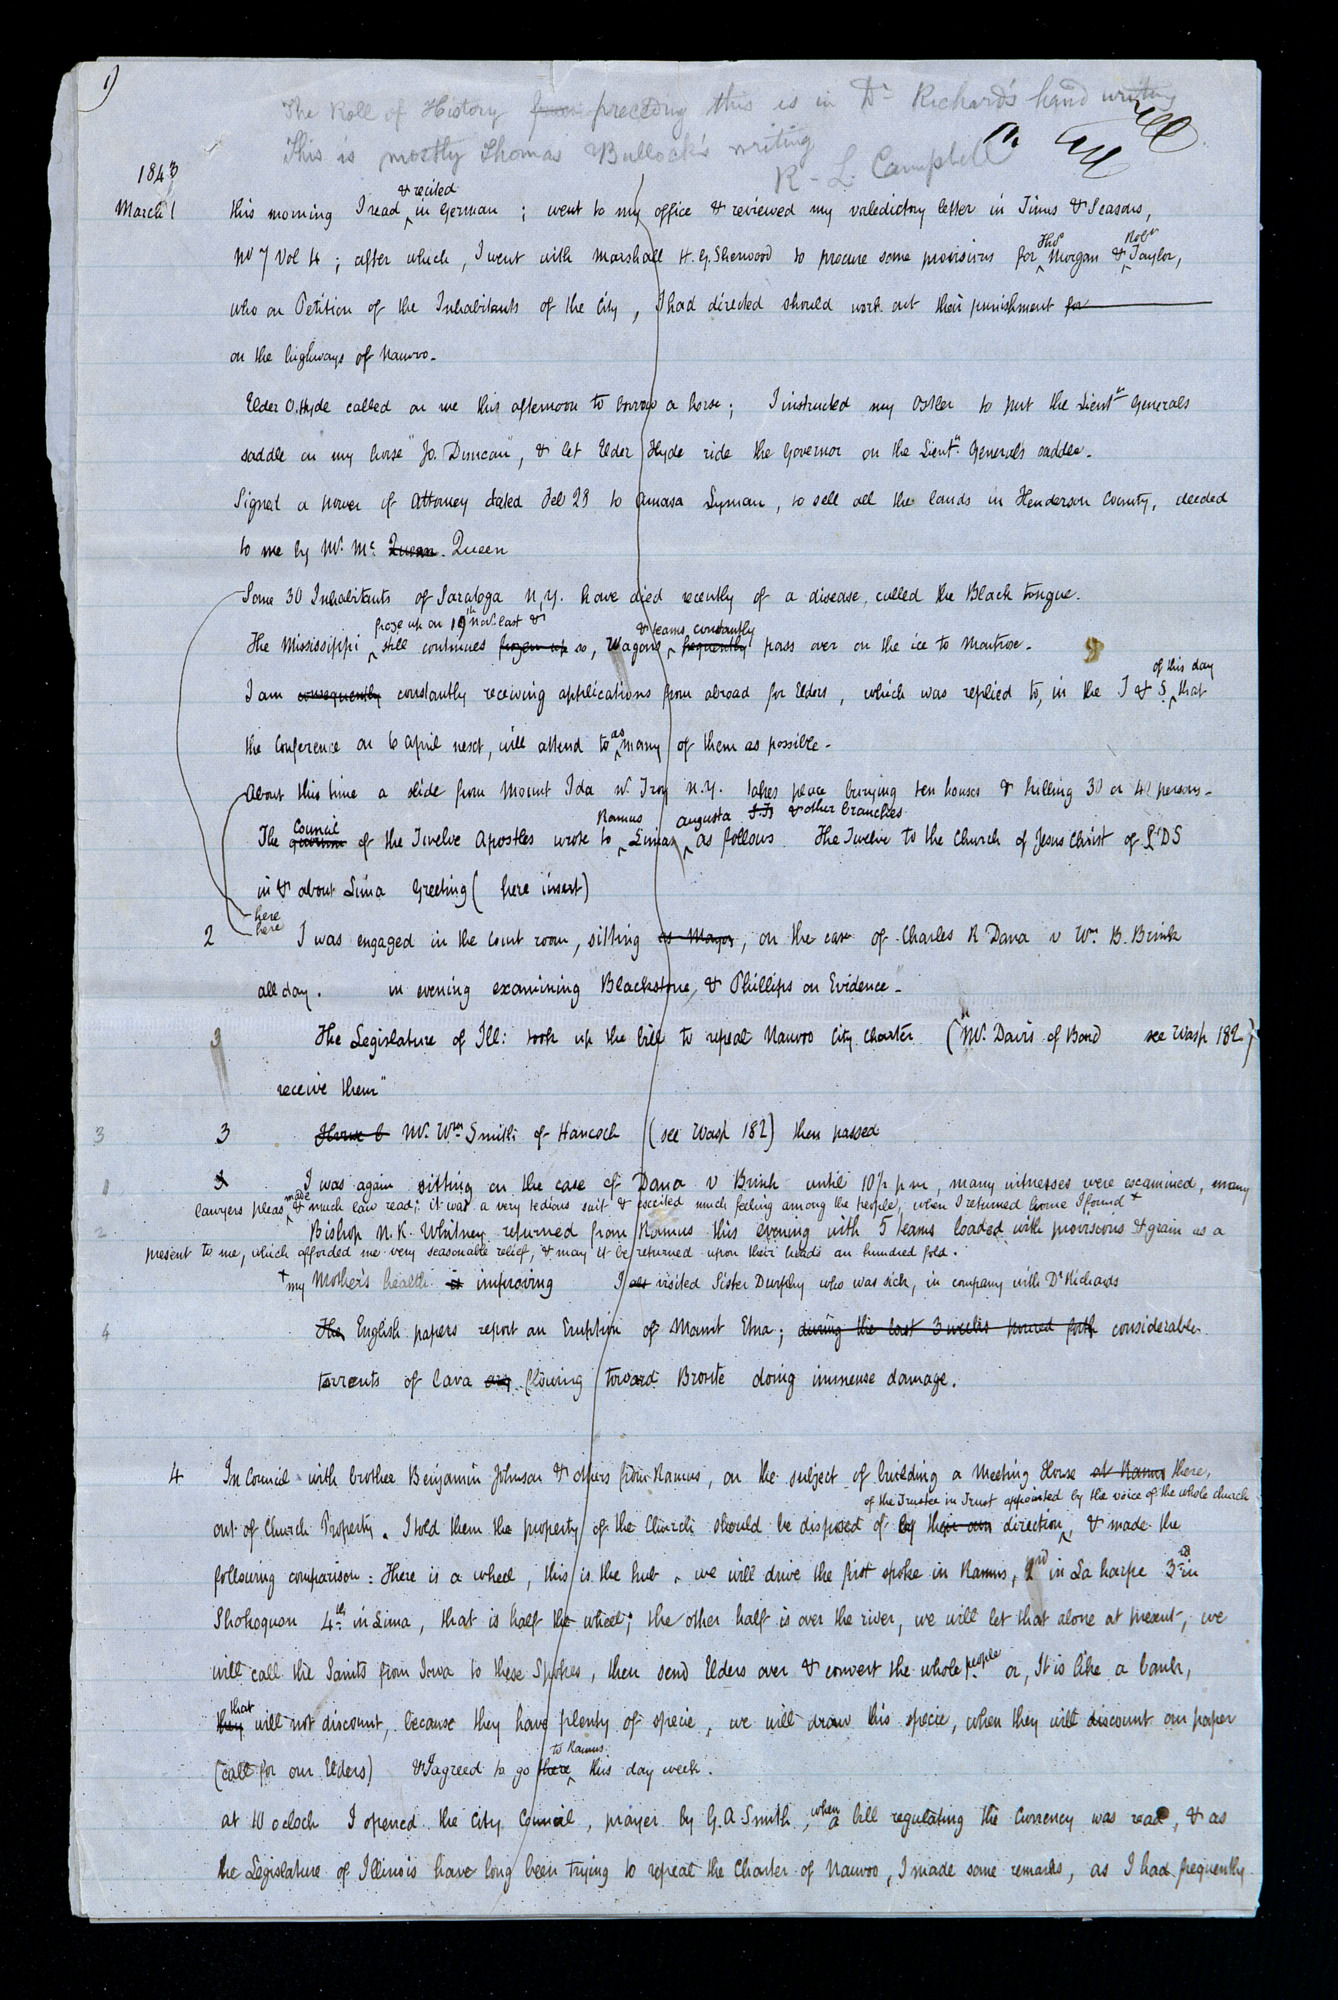 1)
The Roll of History from preceding this is in Dr Richard's hand writing
This is mostly Thomas Bullock's writing
R. L. Campbell
1843
& recited
March 1 this morning I read in German ; went to my office & reviewed my valedictory letter in Times & Seasons,
Thos Robt
No 7 Vol 4 ; after which, I went with Marshall H. G. Sherwood to procure some provisions for Morgan & Taylor,
who on Petition of the Inhabitants of the City, I had directed should work out their punishment for
on the highways of Nauvoo.
Elder O. Hyde called on me this afternoon to borrow a horse; I instructed my Ostler to put the Lieut Generals
saddle on my horse "Jo. Duncan", & let Elder Hyde ride the Governor on the Lieut. General's saddle.
Signed a power of Attorney dated Feb 28 to Amasa Lyman, to sell all the lands in Henderson County, deeded
to me by Mr. Mc Queen. Queen
Some 30 Inhabitants of Saratoga N,Y. have died recently of a disease, called the Black tongue.
froze up on 19th Nov. last & & teams constantly
The Mississippi still continues frozen up so, Wagons frequently pass over on the ice to Montrose.
of this day
I am consequently constantly receiving applications from abroad for Elders, which was replied to, in the T & S. that
as
the Conference on 6 April next, will attend to many of them as possible.
About this time a slide from Mount Ida nr. Troy N.Y. takes place burying ten houses & killing 30 or 40 persons.
Council Ramus Augusta & other branches
The quorum of the Twelve Apostles wrote to Lima, as follows The Twelve to the Church of Jesus Christ of L DS
in & about Lima Greeting ( here insert)
here
here
2 I was engaged in the Court room, sitting as Mayor, on the case of Charles R Dana v Wm. B. Brink
all day. in evening examining "Blackstone" & "Phillips on Evidence".
3 The Legislature of Ill: took up the bill to repeal Nauvoo City Charter (Mr. Davis of Bond see Wasp 182)
receive them"
3 3 House b Mr. Wm Smith of Hancock (see Wasp 182) then passed
1 3 I was again sitting on the case of Dana v Brink until 10½ p m, many witnesses were examined, many
made
lawyers pleas & much law read; it was a very tedious suit & excited much feeling among the people, when I returned home I found +
2 Bishop N. K. Whitney returned from Ramus this evening with 5 teams loaded with provisions & grain as a
present to me, which afforded me very seasonable relief, & may it be returned upon their heads an hundred fold.
+ my Mother's health is improving I als visited Sister Durphy who was sick, in company with Dr Richards
4 The English papers report an Eruption of Mount Etna; during the last 3 weeks poured forth considerable
torrents of lava are flowing toward Bronte doing immense damage.
4 In Council with brother Benjamin Johnson & others from Ramus, on the subject of building a Meeting House at Ramus there,
of the Trustee in Trust appointed by the voice of the whole church
out of Church Property. I told them the property of the Church should be disposed of by their own direction, & made the
following comparison: There is a wheel, this is the hub, we will drive the first spoke in Ramus, 2nd in La harpe 3rd in
Shokoquon 4th in Lima, that is half the wheel; the other half is over the river, we will let that alone at present, we
will call the Saints from Iowa to these Spokes, then send Elders over & convert the whole people or, It is like a bank,
that
they will not discount, because they have plenty of specie, we will draw this specie, when they will discount our paper
to Ramus
(call for our Elders) & I agreed to go there this day week.
at 10 o clock I opened the City Council, prayer by G. A Smith, when a bill regulating the Currency was read, & as
the Legislature of Illinois have long been trying to repeal the Charter of Nauvoo, I made some remarks, as I had frequently